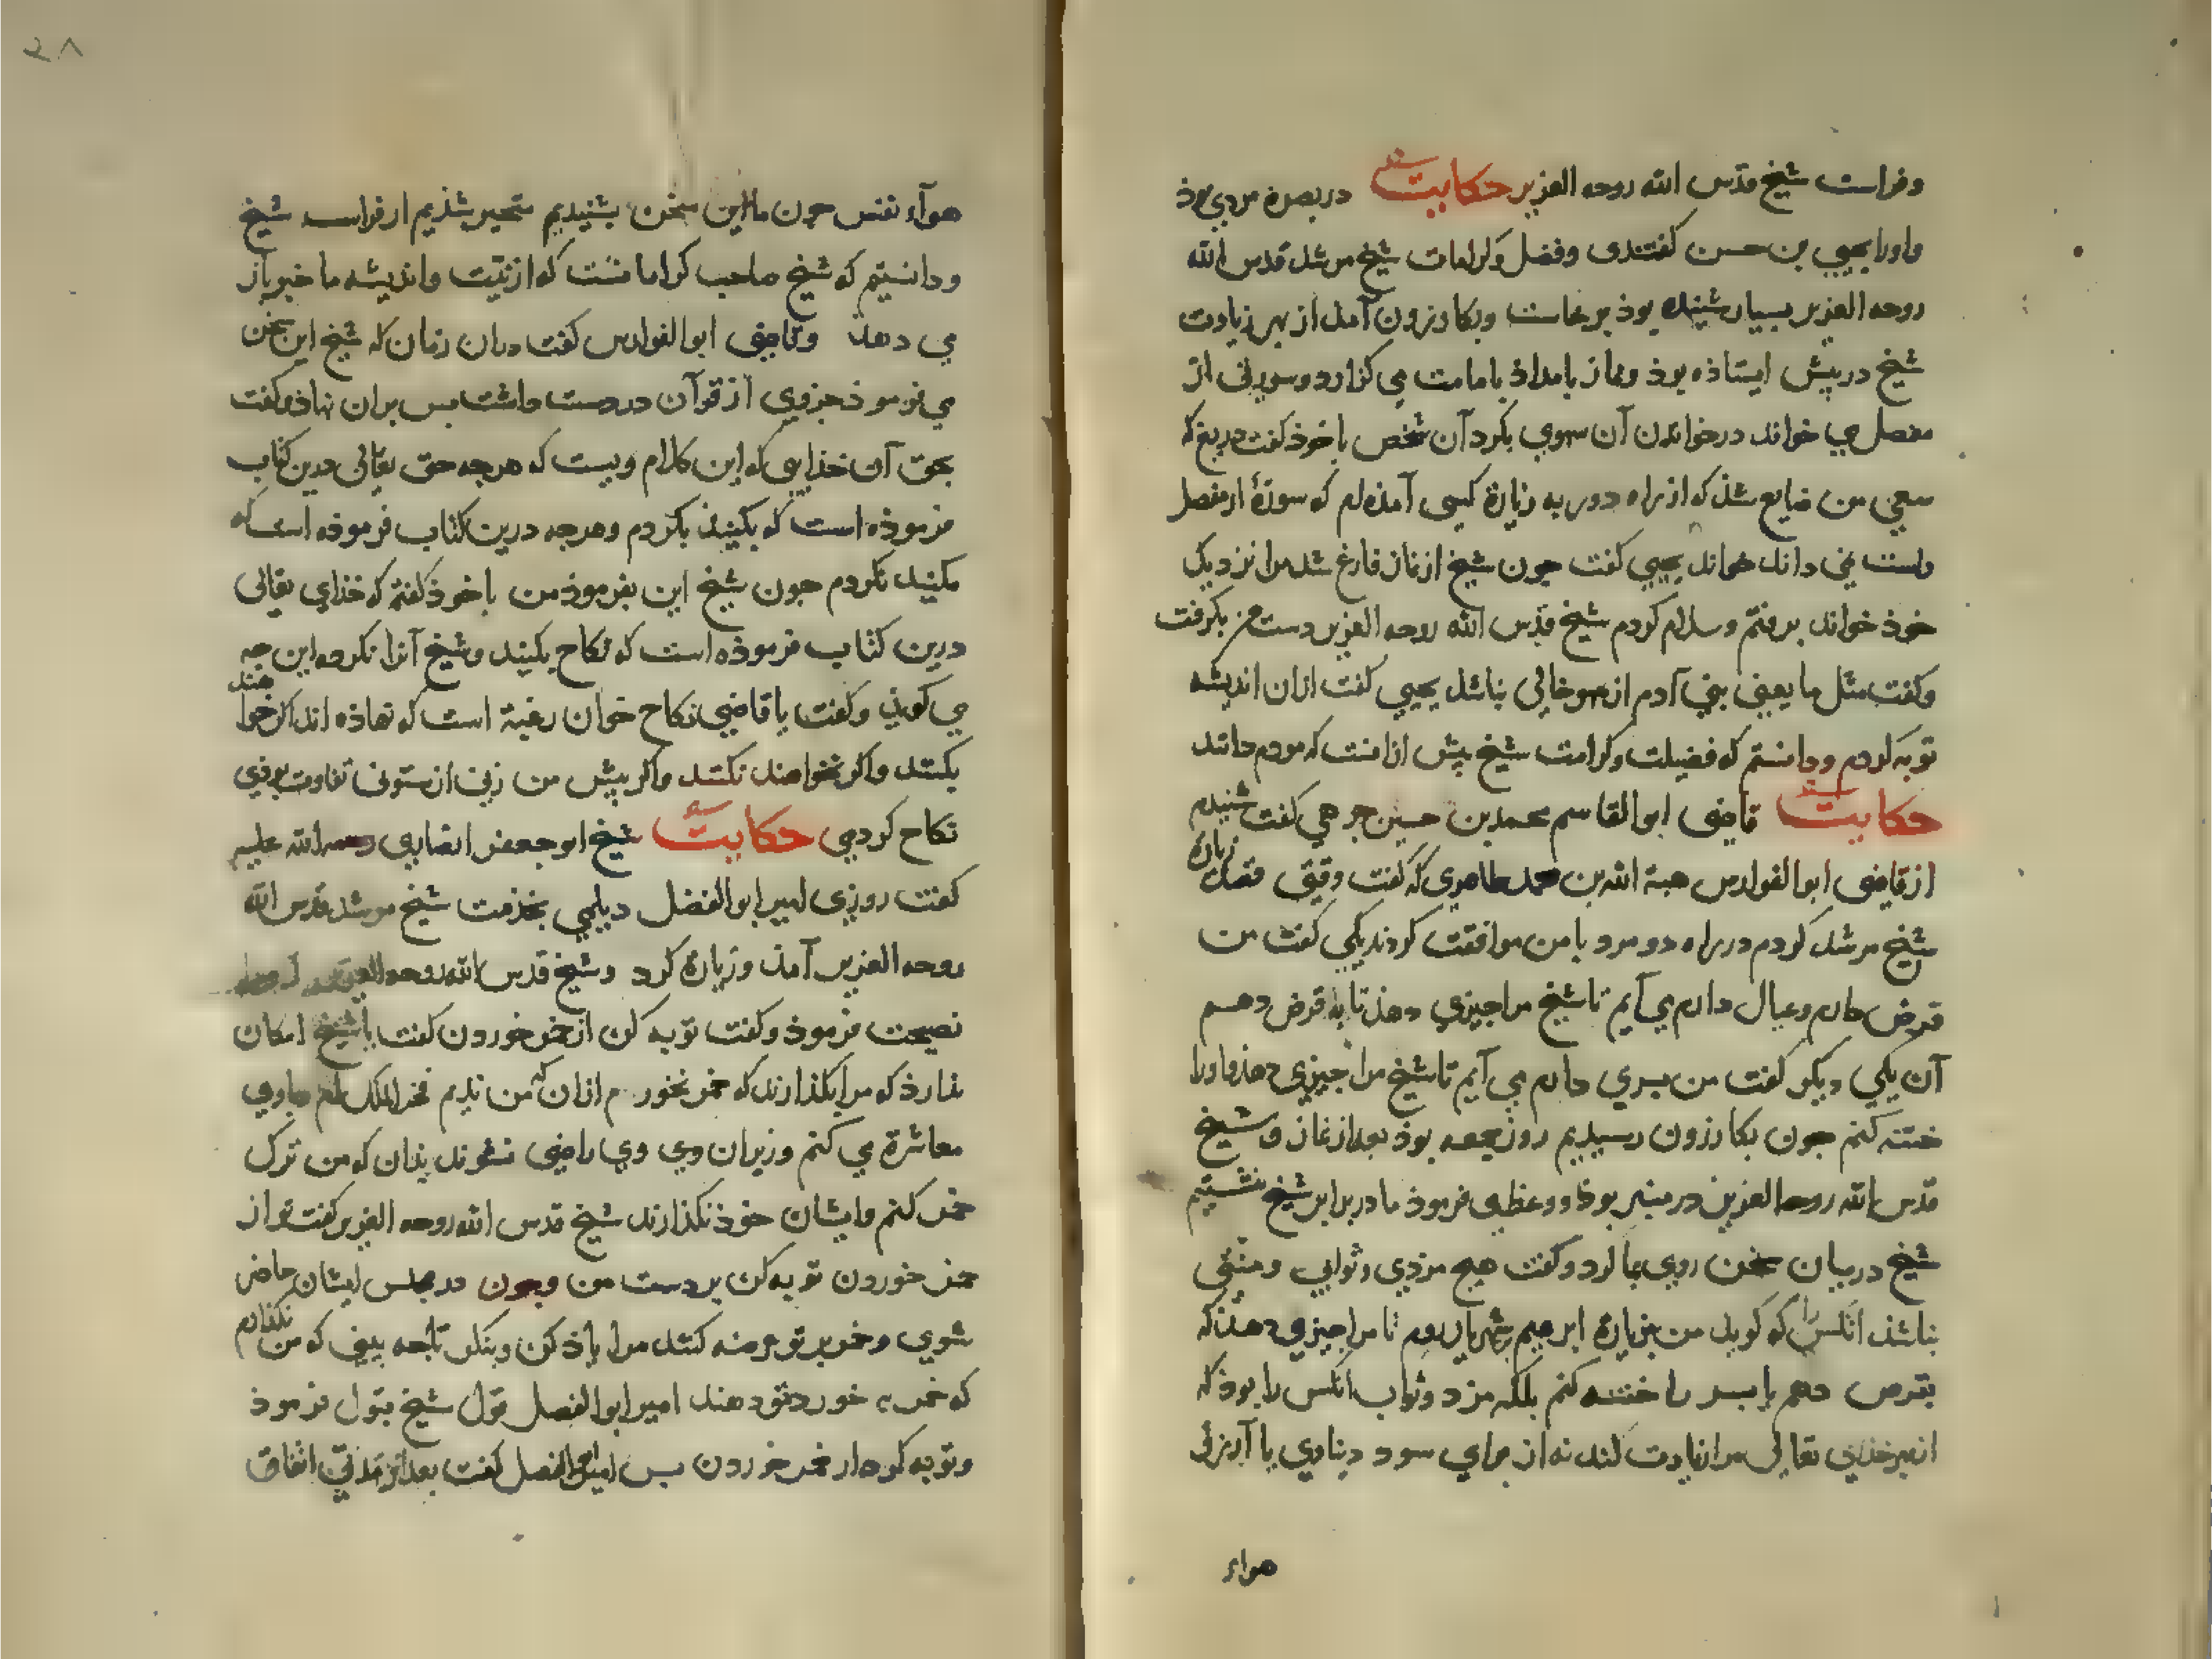 وفراست شیخ قدس الله روحه العزیز حکایت در بصره مردی بوذ
واورا یحیی بن حسن کفتندی وفضل وکرامات شیخ مرشد قدس الله
روحه العزیز بسیار شنیده بوذ برخاست وبکازرون آمد از بهر زیارت
شیخ در پیش ایستاذه بوذ ونماز بامداذ بامامت می کزارد وسورتی از
مفصل می خواند در خواندن آن سهوی بکرد آن شخص با خوذ کفت دریغ که
سعی من ضایع شذ که از راه دور به زیارة کسی آمذه ام که سورة از مفصل
راست نمی داند خواند یحیی کفت جون شیخ از نماز فارغ شد مرا نزدیک
خوذ خواند برفتم وسلام کردم شیخ قدس الله روحه العزیز دست من بکرفت
وکفت مثل ما یعنی بنی آدم از سهو خالی نباشد یحیی کفت ازان اندیشه
توبه کردم ودانستم که فضیلت وکرامت شیخ بیش ازانست که مردم دانند
حکایت قاضی ابوالقاسم محمد بن حسین کفت شنیدم
از قاضی ابوالفوارس هبة الله بن محمد طاهری که کفت وقتی قصد زیارة
شیخ مرشد کردم در راه دو مرد با من موافقت کردند یکی کفت من
قرض دارم وعیال دارم می آیم تا شیخ مرا جیزی دهذ تا به قرض دهم
آن یکی دیکر کفت من بسری دارم می آیم تا شیخ مرا جیزی دهذ واورا
ختنه کنم جون بکازرون رسیدیم روز جمعه بوذ بعد از نماز وشیخ
قدس الله روحه العزیز در منبر بوذ ووعظ می فرموذ ما در برابر شیخ بنشستیم
شیخ در میان سخن روی بما کرد وکفت هیج مزدی وثوابی ومنتی
نباشذ انکس را که کوید من بزیارة ابرهیم شهریار روم تا مرا جیزی دهذ که
بقرض دهم یا بسر را ختنه کنم بلکه مزد وثواب انکس را بوذ که
از بهر خذای تعالی مرا زیارت کند نه از برای سود دنیاوی یا آرزوی
هواء
هوآء نفس جون ما این سخن بشنیدیم متحیر شذیم از فراست شیخ
ودانستیم که شیخ صاحب کراماتست که از نیّت واندیشه ما خبر باز
می دهد وقاضی ابوالفوارس کفت دران زمان که شیخ این سخن
می فرموذ جزوی از قرآن در دست داشت بس بران نهاذ وکفت
بحق آن خذایی که این کلام ویست که هرجه حق تعالی درین کتاب
فرموذه است که بکنیذ بکردم وهرجه درین کتاب فرموذه است که
مکنید نکردم جون شیخ این بفرموذ من با خوذ کفتم که خذای تعالی
درین کتاب فرموذه است که نکاح بکنید وشیخ آنرا نکرده این جه
می کویذ وکفت یا قاضی نکاح خوان رغبة است که نهاذه اند اکر خواهند
بکنند واکر نخواهند نکنند واکر بیش من زنی از ستونی تفاوت بوذی
نکاح کردمی حکایت شیخ ابو جعفر انصاری رحمه الله علیه
کفت روزی امیر ابوالفضل دیلمی بخذمت شیخ مرشد قدس الله
روحه العزیز آمذ وزیارة کرد وشیخ قدس الله روحه العزیز
نصیحت فرموذ وکفت توبه کن از خمر خوردن کفت یا شیخ امکان
نذارذ که مرا بکذارند که خمر نخورم ازان که من ندیم فخر الملک ام وباوی
معاشرة می کنم وزیران وی راضی نشوند بذان که من ترک
خمر کنم وایشان خوذ نکذارند شیخ قدس الله روحه العزیز کفت تو از
خمر خوردن توبه کن بر دست من وجون در مجلس ایشان حاضر
شوی وخمر بر تو عرضه کنند مرا یاذ کن وبنکر تا جه بینی که من نکذارم
که خمر به خورد تو دهند امیر ابوالفضل قول شیخ قبول فرموذ
وتوبه کرد از خمر خوردن بس امیر ابوالفضل کفت بعد از مدتی اتفاق